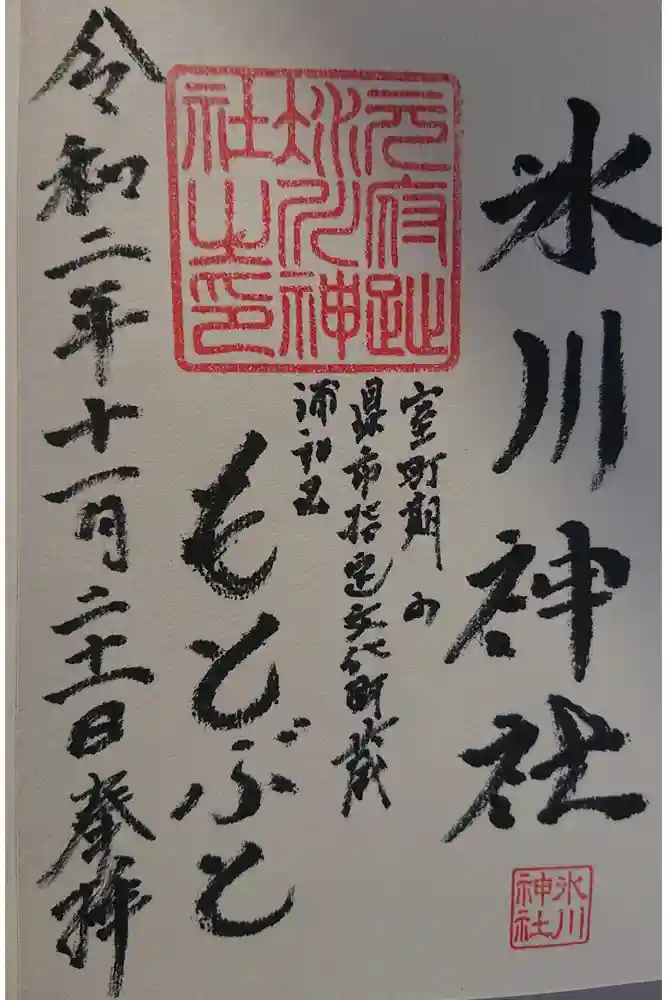 氷川神社
氷川
神社
元府趾
氷川神
社之印
室町期の
県市指定文化財蔵
浦和
もとぶと
令和二年十一月二十一日奉拝